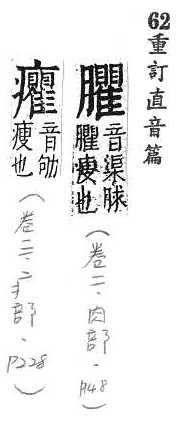 62重訂直音篇
臞 音渠脙
臞瘦也
(卷二、肉部、)
癯 音劬
瘦也
(卷三、疒部、P228)